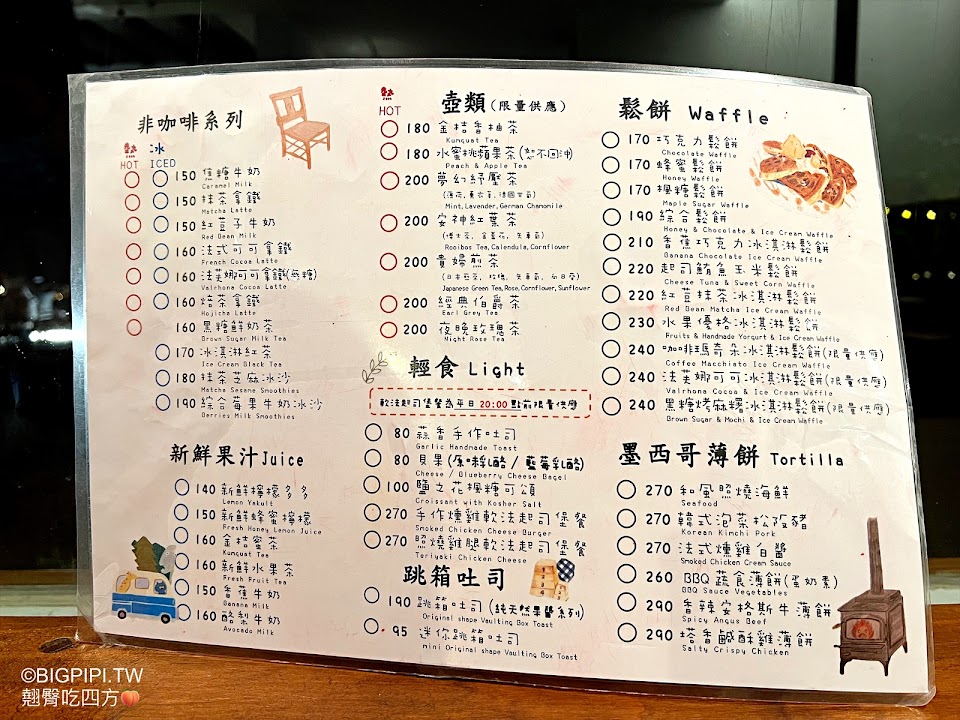 非咖啡系列
熱 冰
HOT ICED
150 焦糖牛奶
Caramel Milk
150 抹茶拿鐵
Matcha Latte
150 紅荳子牛奶
Red Bean Milk
160 法式可可拿鐵
French Cocoa Latte
160 法芙娜可可拿鐵(無糖)
Valrhona Cocoa Latte
160 焙茶拿鐵
Hojicha Latte
160 黑糖鮮奶茶
Brown Sugar Milk Tea
170 冰淇淋紅茶
Ice Cream Black Tea
180 抹茶芝麻冰沙
Matcha Sesame Smoothies
190 綜合莓果牛奶冰沙
Berries Milk Smoothies
新鮮果汁Juice
140 新鮮檸檬多多
Lemon Yakult
150 新鮮蜂蜜檸檬
Fresh Honey Lemon Juice
160 金桔蜜茶
Kumquat Tea
160 新鮮水果茶
Fresh Fruit Tea
150 香蕉牛奶
Banana Milk
160 酪梨牛奶
Avocado Milk
熱
HOT
壺類(限量供應)
180 金桔香柚茶
Kumquat Tea
180 水蜜桃蘋果茶(恕不回沖)
Peach & Apple Tea
200 夢幻紓壓茶
(薄荷, 薰衣草, 德國甘菊)
Mint, Lavender, German Chamomile
200 安神紅葉茶
(博士茶, 金盞花, 矢車菊)
Rooibos Tea, Calendula, Cornflower
200 貴婦煎茶
(日本煎茶, 玫瑰, 矢車菊, 向日葵)
Japanese Green Tea, Rose, Cornflower, Sunflower
200 經典伯爵茶
Earl Grey Tea
200 夜晚玫瑰茶
Night Rose Tea
輕食 Light
軟法起司堡餐為平日 20:00 點前限量供應
80 蒜香手作吐司
Garlic Handmade Toast
80 貝果(原味乳酪 / 藍莓乳酪)
Cheese / Blueberry Cheese Bagel
100 鹽之花楓糖可頌
Croissant with Kosher Salt
270 手作燻雞軟法起司堡餐
Smoked Chicken Cheese Burger
270 照燒雞腿軟法起司堡餐
Teriyaki Chicken Cheese
跳箱吐司
190 跳箱吐司(純天然果醬系列)
Original shape Vaulting Box Toast
95 迷你跳箱吐司
mini Original shape Vaulting Box Toast
鬆餅 Waffle
170 巧克力鬆餅
Chocolate Waffle
170 蜂蜜鬆餅
Honey Waffle
170 楓糖鬆餅
Maple Sugar Waffle
190 綜合鬆餅
Honey & Chocolate & Ice Cream Waffle
210 香蕉巧克力冰淇淋鬆餅
Banana Chocolate Ice Cream Waffle
220 起司鮪魚玉米鬆餅
Cheese Tuna & Sweet Corn Waffle
220 紅荳抹茶冰淇淋鬆餅
Red Bean Matcha Ice Cream Waffle
230 水果優格冰淇淋鬆餅
Fruits & Handmade Yorgurt & Ice Cream Waffle
240 咖啡瑪奇朵冰淇淋鬆餅(限量供應)
Coffee Macchiato Ice Cream Waffle
240 法芙娜可可冰淇淋鬆餅(限量供應)
Valrhona Cocoa & Ice Cream Waffle
240 黑糖烤麻糬冰淇淋鬆餅(限量供應)
Brown Sugar & Mochi & Ice Cream Waffle
墨西哥薄餅 Tortilla
270 和風照燒海鮮
Seafood
270 韓式泡菜松阪豬
Korean Kimchi Pork
270 法式燻雞白醬
Smoked Chicken Cream Sauce
260 BBQ 蔬食薄餅(蛋奶素)
BBQ Sauce Vegetables
290 香辣安格斯牛薄餅
Spicy Angus Beef
290 塔香鹹酥雞薄餅
Salty Crispy Chicken
©BIGPIPI.TW
翹臀吃四方